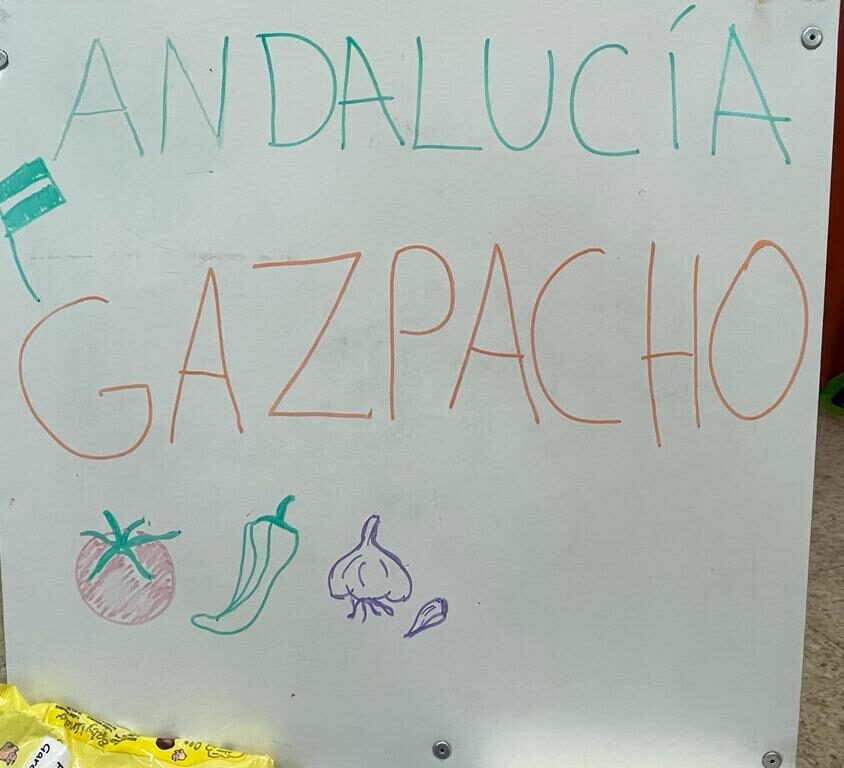 ANDALUCÍA
GAZPACHO